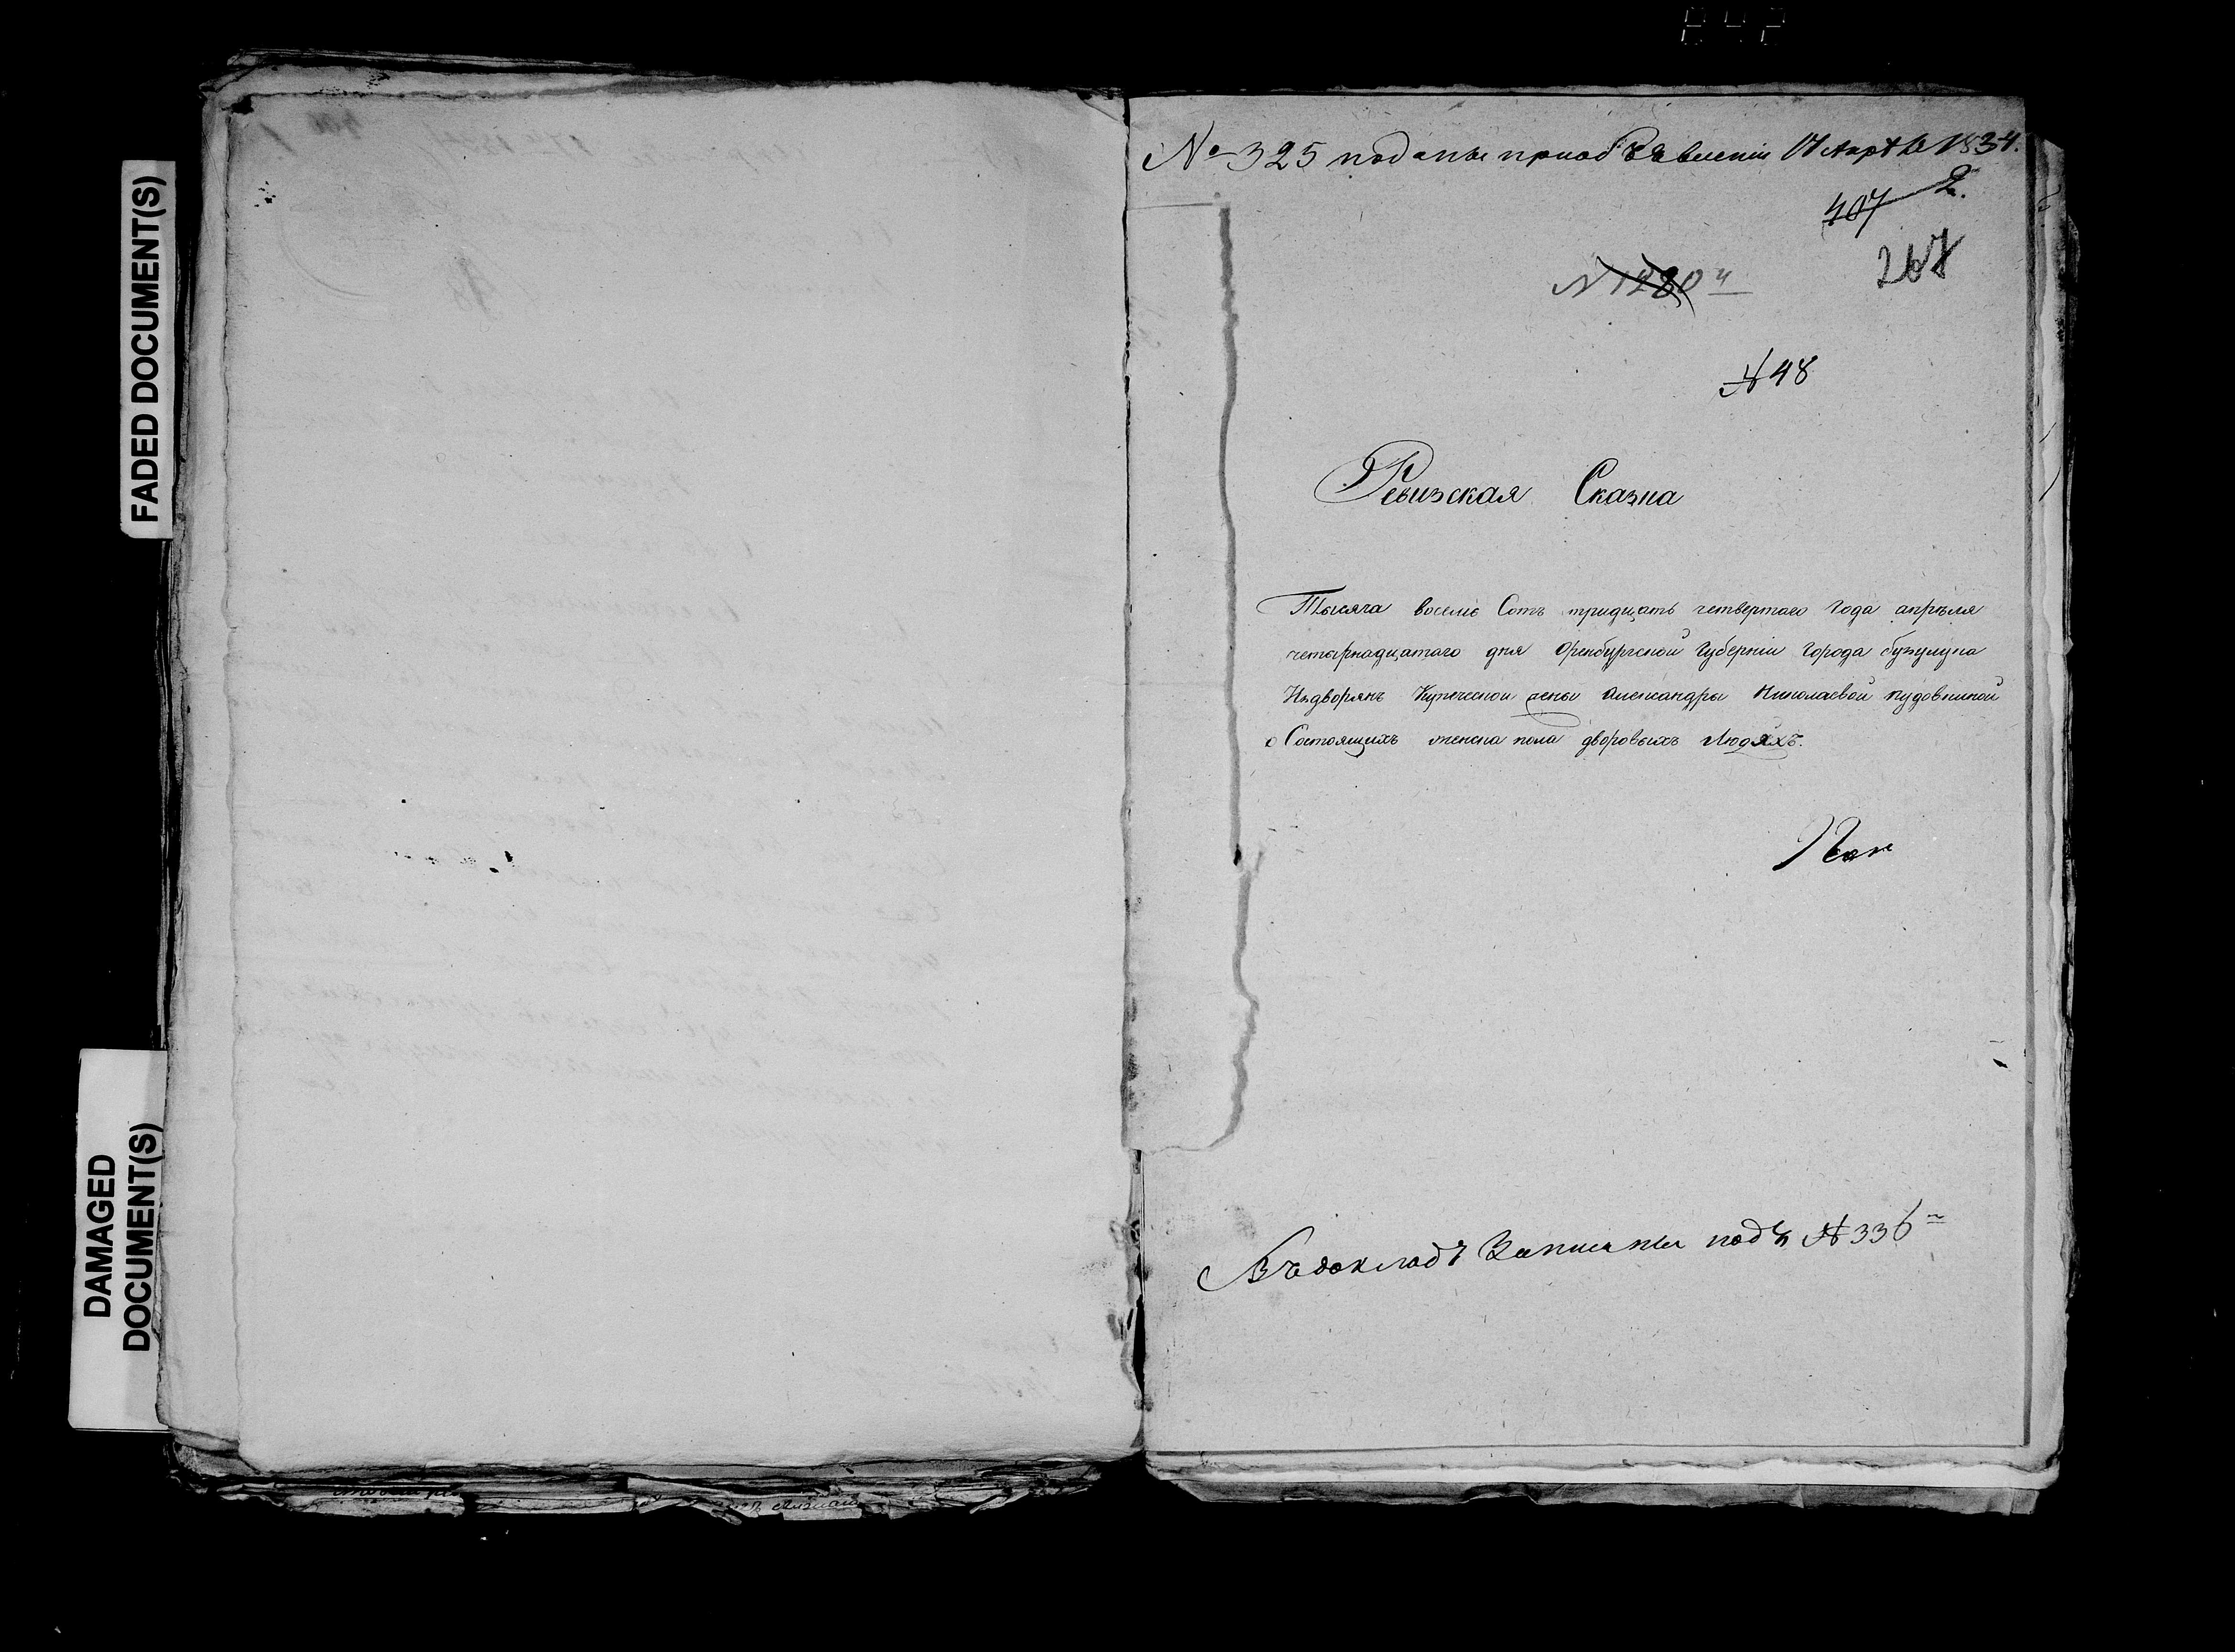 FADED DOCUMENT(S)
DAMAGED
DOCUMENT(S)
842
№ 325 поданы приобъявленіи 17 Апрѣля 1834.
407 2.
267
N 1280
№ 48
Ревизская Сказка
Тысяча восемь Сотъ тридцать четвертаго Года апрѣля
четырнадцатаго дня Оренбургской Губерніи Города бузулука
Издворянъ Купеческой жены александры Николаевой пудовкиной
о Состоящихъ женска пола дворовыхъ Людяхъ.
Въ докладъ Записаны подъ № 336